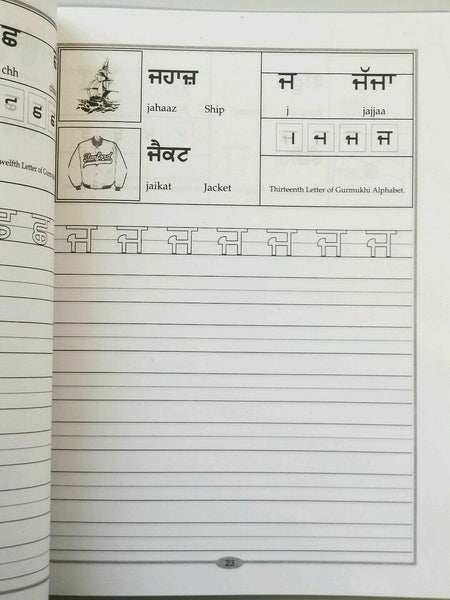 ਛ
chh
ਜਹਾਜ਼
jahaaz Ship
ਜੈਕਟ
jaikat Jacket
ਜ ਜੱਜਾ
j jajjaa
ਜ
Thirteenth Letter of Gurmukhi Alphabet.
welfth Letter of Gurmukh
ਛ ਛ
ਜ ਜ ਜ ਜ ਜ ਜ ਜ
23